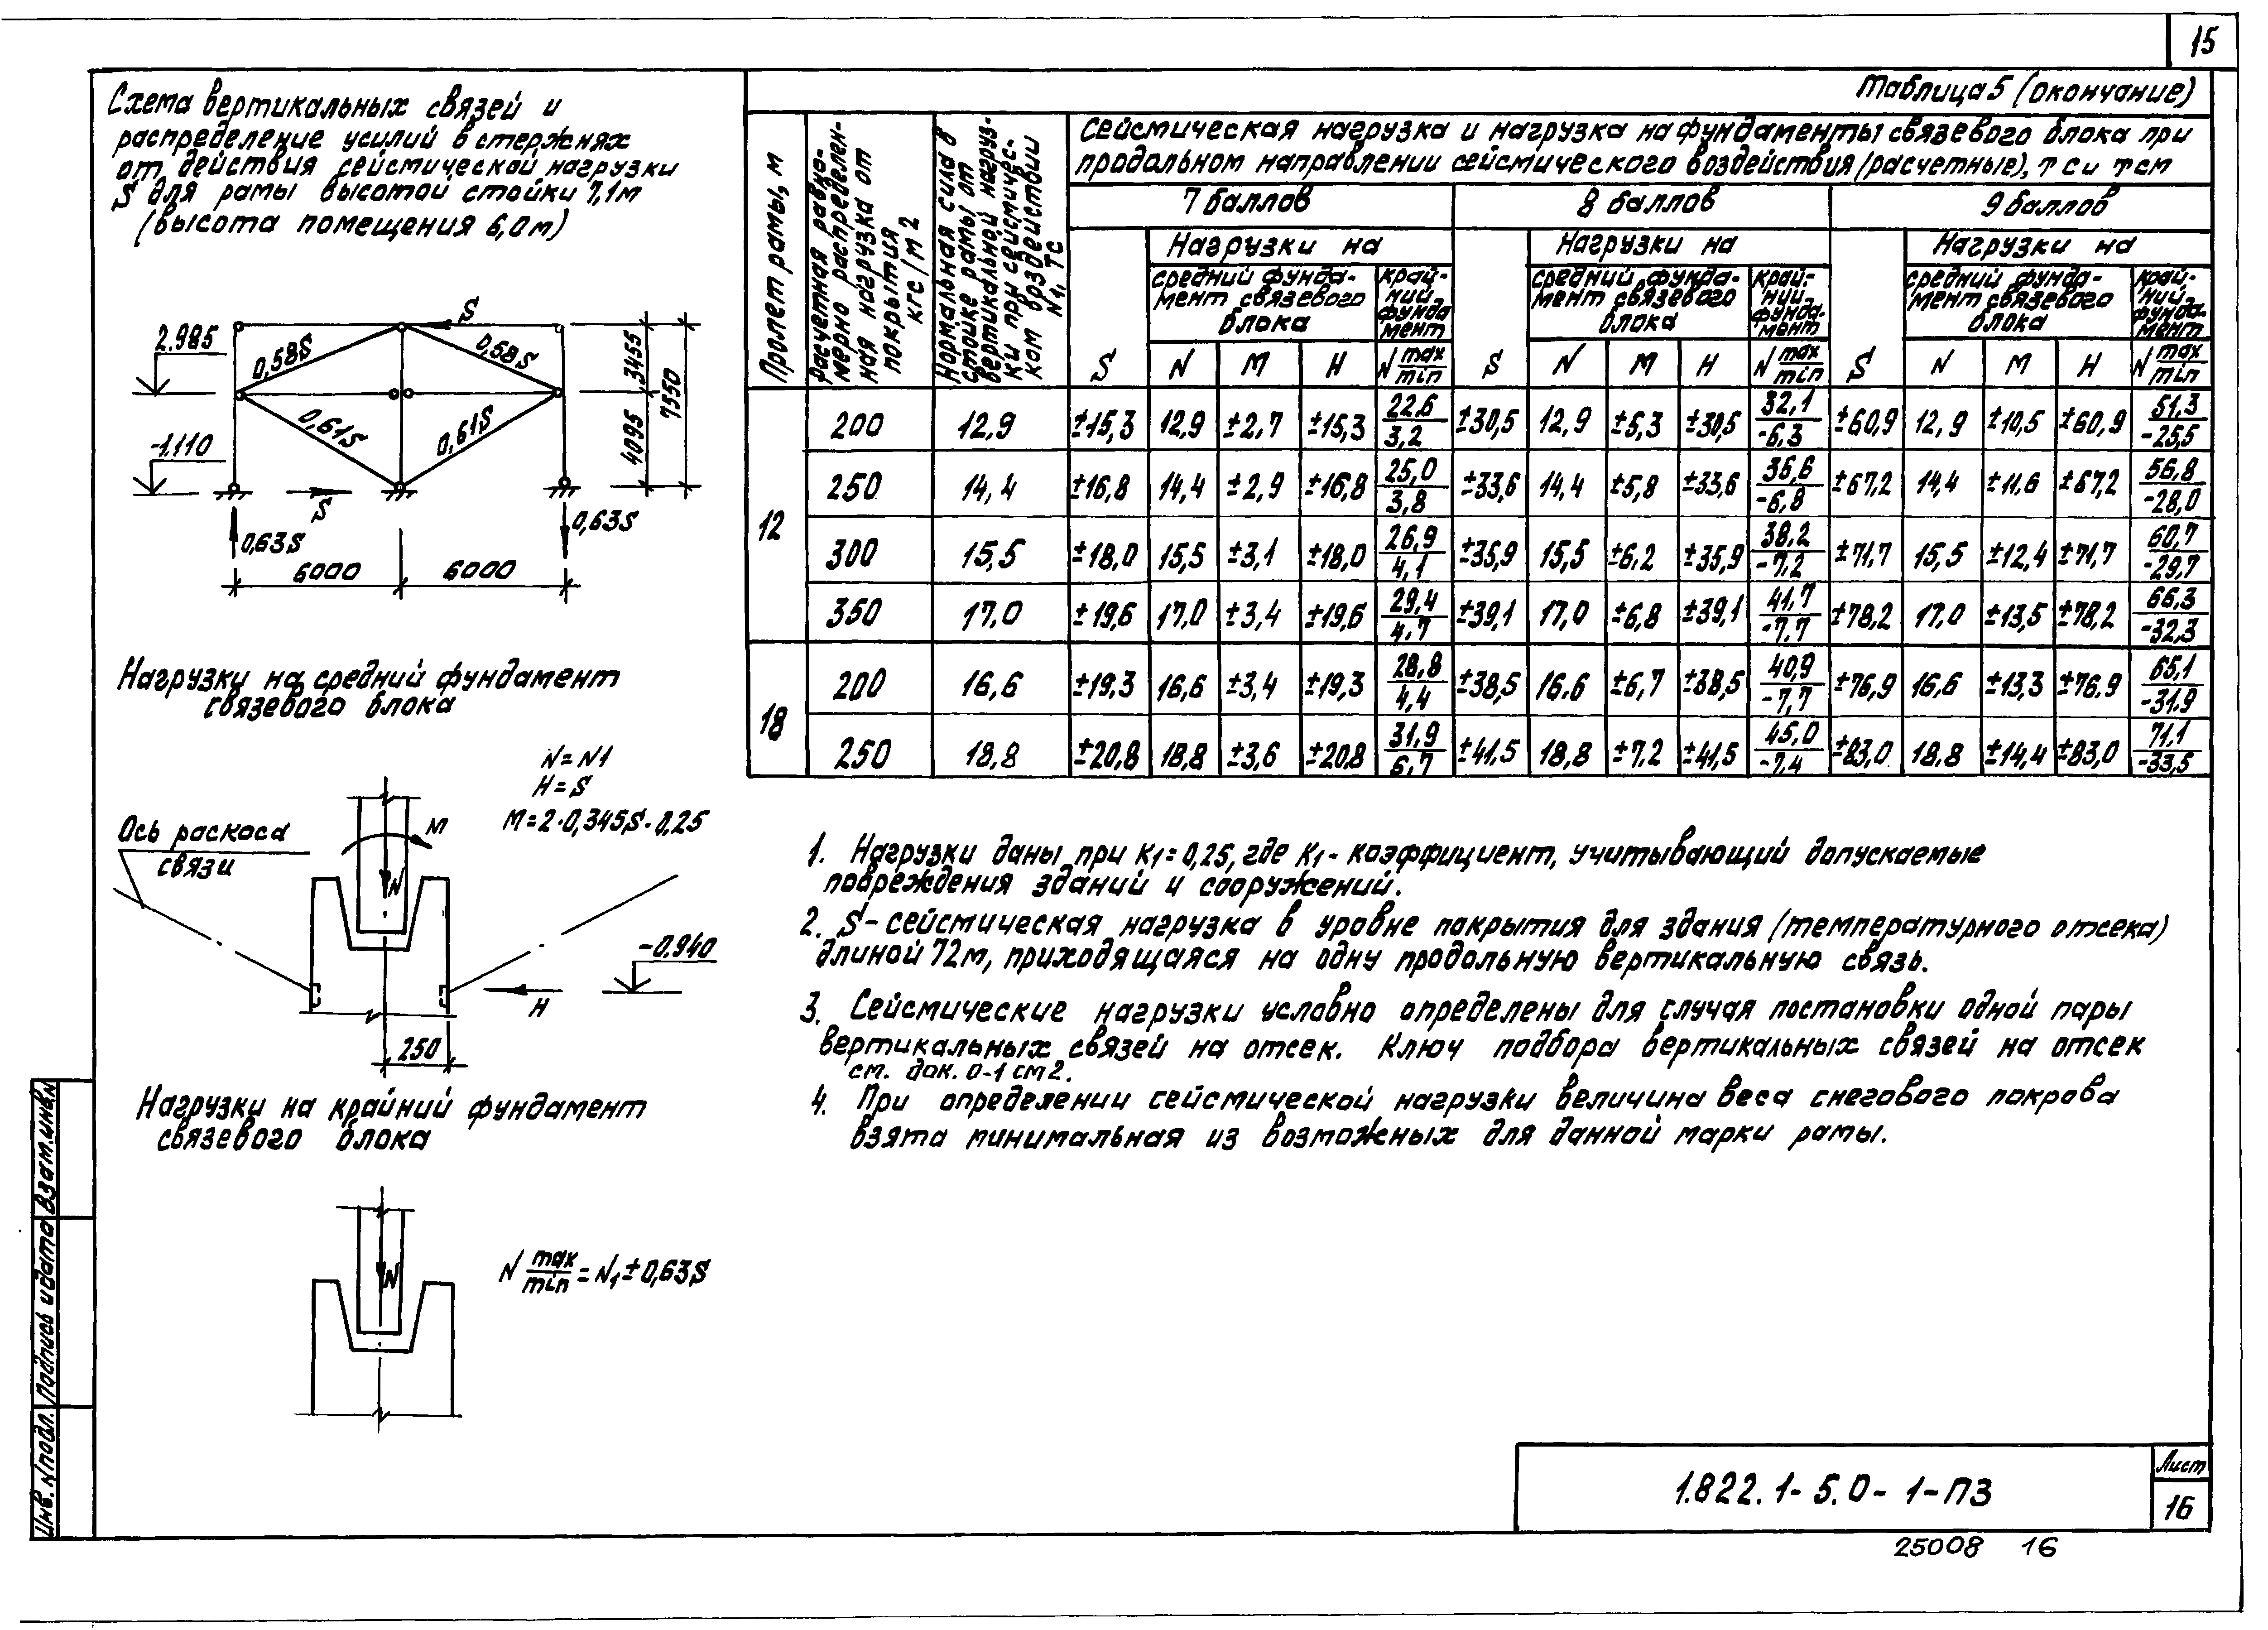 15
Схема вертикальных связей и
распределение усилий в стержнях
от действия сейсмической нагрузки
S для рамы высотой стойки 7,1м
(высота помещения 6,0м)
S
2.985
0,58S
0,58S
3455
7550
-1.110
0,61S
0,61S
4095
S
0,63S
0,63S
6000
6000
Нагрузки на средний фундамент
связевого блока
N=N1
H=S
M=2·0,345S·0,25
Ось раскоса
связи
M
N
-0.940
H
250
Нагрузки на крайний фундамент
связевого блока
N max/min = N1 ± 0,63S
N
Таблица 5 (окончание)
Пролет рамы, м
Расчетная равно-
мерно распределен-
ная нагрузка от
покрытия
кгс/м2
Нормальная сила в
стойке рамы от
вертикальной нагруз-
ки при сейсмичес-
ком воздействии
N1, тс
Сейсмическая нагрузка и нагрузка на фундаменты связевого блока при
продольном направлении сейсмического воздействия (расчетные), тс и тсм
7 баллов 8 баллов 9 баллов
Нагрузки на Нагрузки на Нагрузки на
средний фунда- край- средний фунда- край- средний фунда- край-
мент связевого ний мент связевого ний мент связевого ний
блока фунда мент блока фунда- мент блока фунда- мент
S N M H N max/min S N M H N max/min S N M H N max/min
12
200 12,9 ±15,3 12,9 ±2,7 ±15,3 22,6/3,2 ±30,5 12,9 ±5,3 ±30,5 32,1/-6,3 ±60,9 12,9 ±10,5 ±60,9 51,3/-25,5
250 14,4 ±16,8 14,4 ±2,9 ±16,8 25,0/3,8 ±33,6 14,4 ±5,8 ±33,6 35,6/-6,8 ±67,2 14,4 ±11,6 ±67,2 56,8/-28,0
300 15,5 ±18,0 15,5 ±3,1 ±18,0 26,9/4,1 ±35,9 15,5 ±6,2 ±35,9 38,2/-7,2 ±71,7 15,5 ±12,4 ±71,7 60,7/-29,7
350 17,0 ±19,6 17,0 ±3,4 ±19,6 29,4/4,7 ±39,1 17,0 ±6,8 ±39,1 41,7/-7,7 ±78,2 17,0 ±13,5 ±78,2 66,3/-32,3
18
200 16,6 ±19,3 16,6 ±3,4 ±19,3 28,8/4,4 ±38,5 16,6 ±6,7 ±38,5 40,9/-7,7 ±76,9 16,6 ±13,3 ±76.9 65,1/-31.9
250 18,8 ±20,8 18,8 ±3,6 ±20,8 31,9/6,7 ±41,5 18,8 ±7,2 ±41,5 45,0/-7,4 ±83,0 18,8 ±14,4 ±83,0 71,1/-33,5
1. Нагрузки даны при К1=0,25, где К1- коэффициент, учитывающий допускаемые
повреждения зданий и сооружений.
2. S- сейсмическая нагрузка в уровне покрытия для здания (температурного отсека)
длиной 72м, приходящаяся на одну продольную вертикальную связь.
3. Сейсмические нагрузки условно определены для случая постановки одной пары
вертикальных связей на отсек. Ключ подбора вертикальных связей на отсек
см. док. 0-1 см 2.
4. При определении сейсмической нагрузки величина веса снегового покрова
взята минимальная из возможных для данной марки рамы.
Инв. N подл. Подпись и дата Взам.инв.N
1.822.1-5.0-1-ПЗ
Лист
16
25008 16